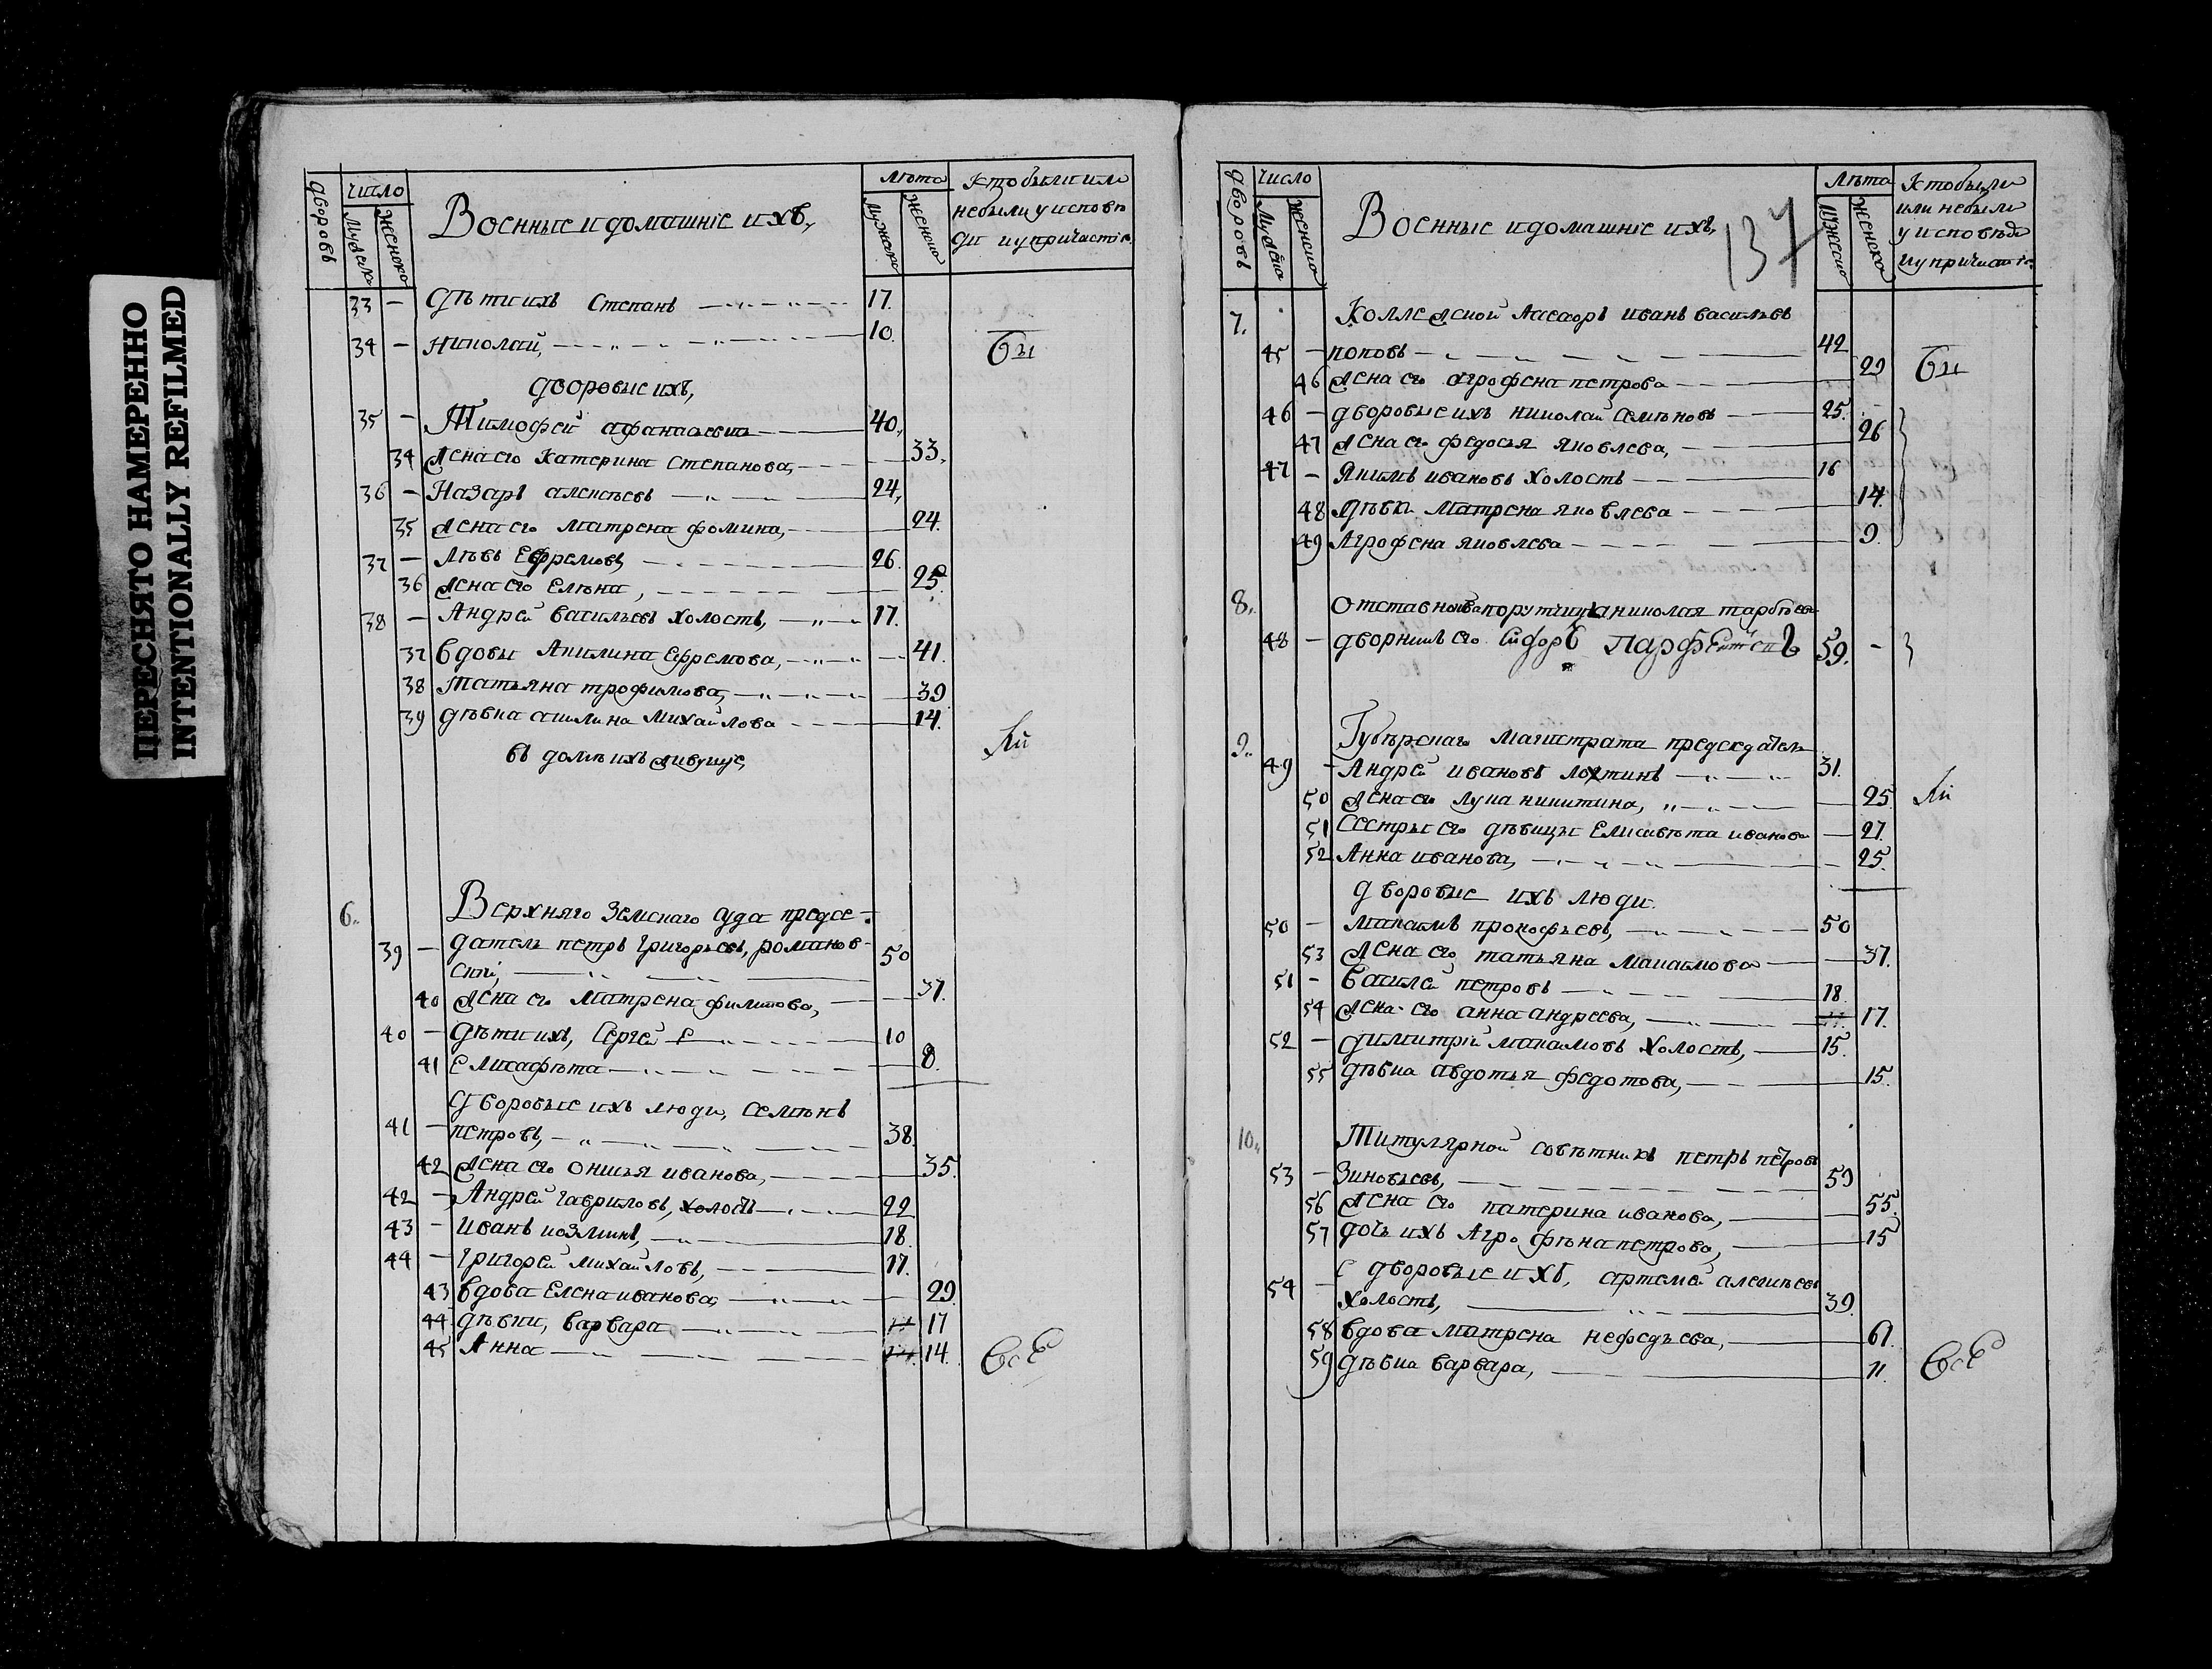 ПЕРЕСНЯТО НАМЕРЕННО
INTENTIONALLY REFILMED
дворовъ
число
мужска
женска
Военные и домашніе ихъ,
лѣта
мужска
женска
кто были или
не были у исповѣ
ди и у причастія
33 - дѣти ихъ Степанъ 17.
34 - николай, 10. бы
дворовые ихъ,
35 - Тимофей афанасьевъ 40,
34 жена его Катерина Степанова, 33,
36 - Назаръ алексѣевъ 24,
35 жена его матрена фомина, 24.
37 - лѣвъ Ефремовъ 26.
36 жена его Елѣна, 25.
38 - Андрей васильевъ холостъ, 17.
37 вдовы Акилина Ефремова, 41.
38 татьяна трофимова, 39
39 дѣвка акилина михайлова 14. ли
въ домѣ ихъ живущіе,
6. Верхняго Земскаго суда предсе-
39 - датель петръ григорьевъ, романов- 50
ский,
40 жена его матрена филипова, 37.
40 - дѣти ихъ, Сергей 10
41 Елисафѣта 8.
дворовые ихъ люди, Семѣнъ
41 - петровъ, 38.
42 жена его онисья иванова, 35.
42 - Андрей гавриловъ, холостъ 22
43 - иванъ козминъ, 18.
44 - григорей михайловъ, 17.
43 вдова Елена иванова, 29.
44 дѣвки, варвара 17
45 Анна 14. всѣ
дворовъ
число
мужска
женска
Военные и домашніе ихъ,
137
лѣта
мужеска
женска
кто были
или не были
у исповѣди
и у причастія
7. Коллежской Ассесоръ иванъ васильевъ
45 - поповъ 42
46 жена его агрофена петрова 29 бы
46 - дворовые ихъ николай Семѣновъ 25.
47 жена его федосья яковлева, 26
47 - Якимъ ивановъ холостъ 16
48 дѣвки матрена яковлева 14.
49 Агрофена яковлева 9.
8. отставнова порутчика николая
48 - дворникъ его 59. -
9. Губернскаго магистрата предсѣдатель
49 - Андрей ивановъ лохтинъ 31.
50 жена его лукія никитина, 25. ли
51 Сестры его дѣвицы Елисавѣта иванова 27.
52 Анна иванова, 25.
дворовые ихъ люди.
50 - максимъ прокофьевъ, 50
53 жена его татьяна максимова 37.
51 - василей петровъ 18.
54 жена его анна андреева, 17.
52 - димитрій максимовъ холостъ, 15.
55 дѣвка авдотья федотова, 15.
10. Титулярной совѣтникъ петръ петровъ
53 - Зиновьевъ, 59
56 жена его катерина иванова, 55.
57 дочь ихъ Агрофѣна петрова, 15
54 - дворовые ихъ, артемей алексѣевъ
холостъ, 39.
58 вдова матрена нефедьева, 61.
59 дѣвка варвара, 11. всѣ